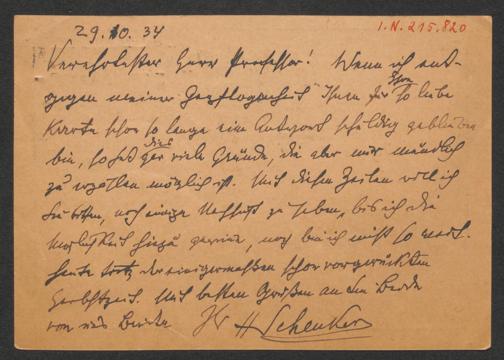 29.10.34
I.N. 215.820
Verehrtester Herr Professor! Wenn ich ent-
gegen meiner Gepflogenheit Ihnen für Ihre so liebe
Karte schon so lange eine Antwort schuldig geblieben
bin, so hat dies gar viele Gründe, die aber nur mündlich
zu erzählen möglich ist. Mit diesen Zeilen will ich
Sie bitten, noch einige Nachsicht zu haben, bis ich die
Möglichkeit hiezu gewinne, noch bin ich nicht so weit.
heute trotz der einigermaßen schon vorgerückten
Herbstzeit. Mit besten Grüßen an Sie Beide
von uns Beiden Ihr H Schenker